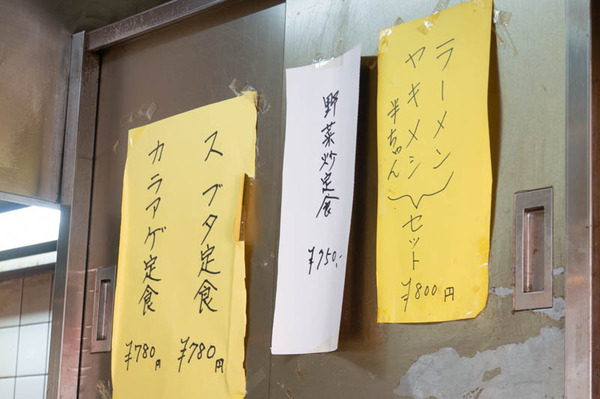 ラーメン
ヤキメシ
半ちゃん
セット
¥800円
野菜炒定食
¥950.-
スブタ定食
¥780円
カラアゲ定食
¥780円